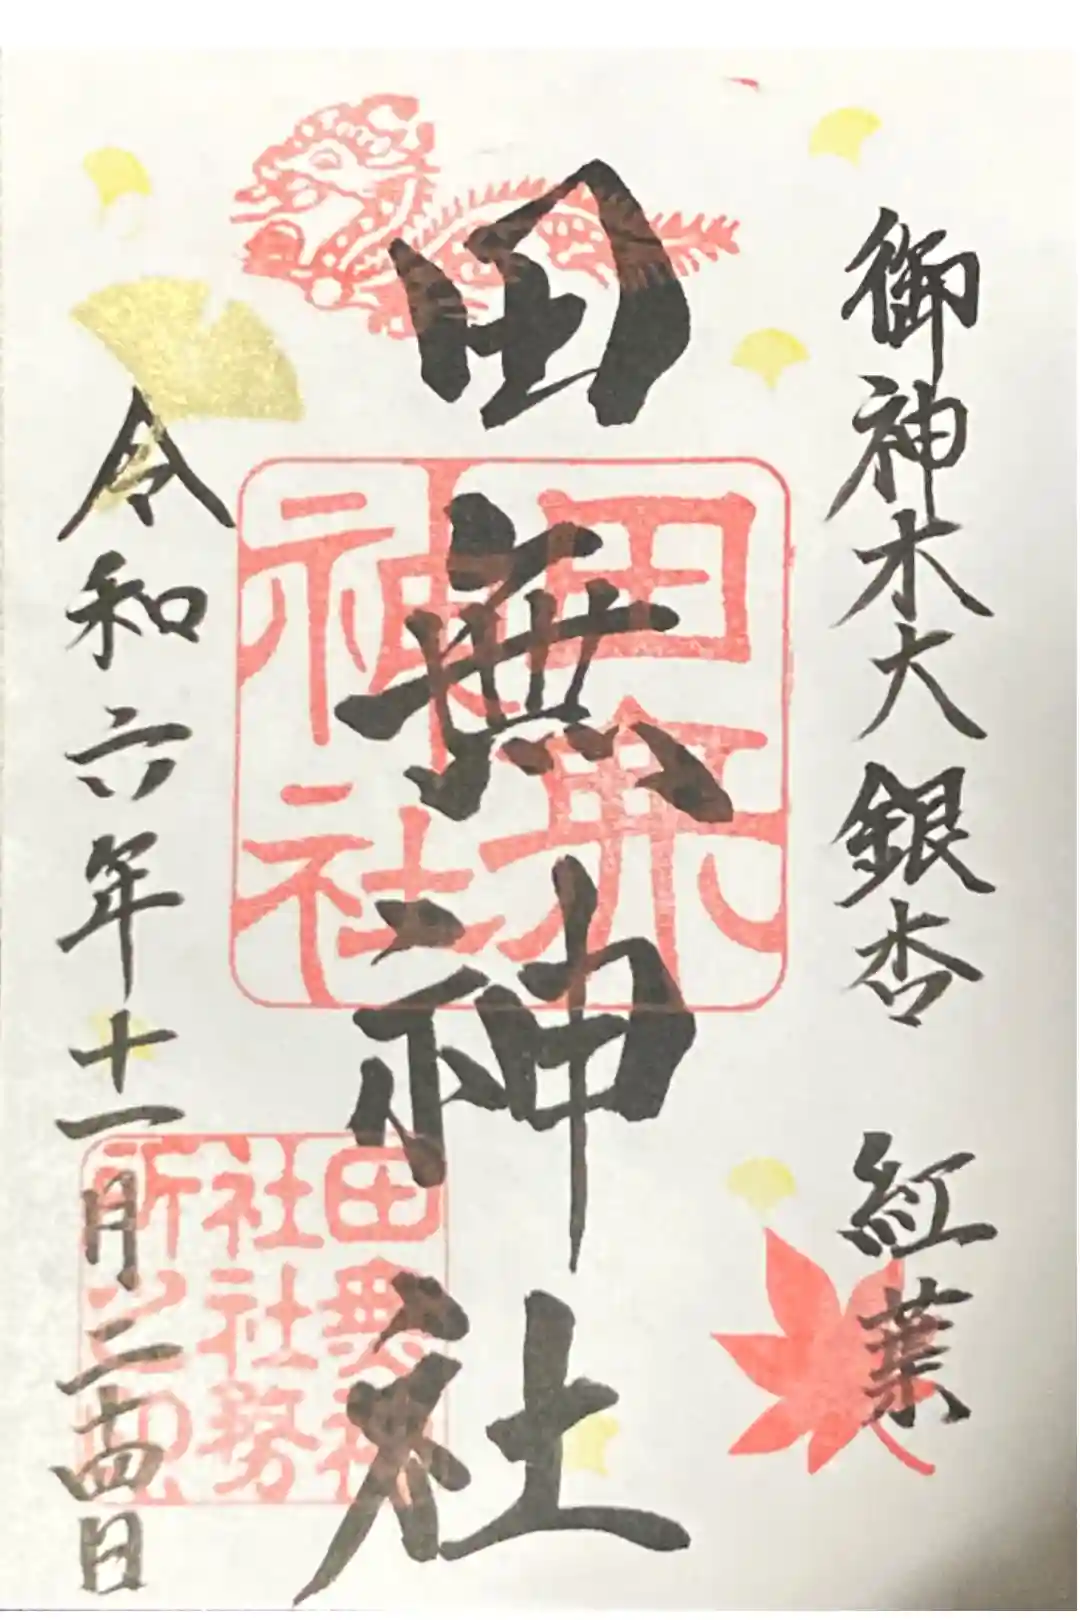 御神木大銀杏 紅葉
田無神社
田無神社
令和六年十一月二十四日
田無神社社務所之印